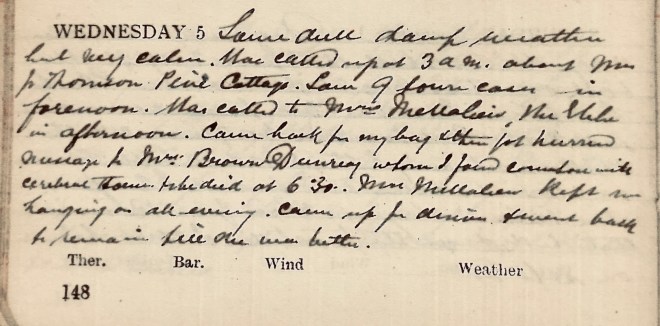 WEDNESDAY 5 Same dull damp weather
but very calm. Was called up at 3 a.m. about Mrs
Thomson Pine Cottage. Saw 9 four cases in
forenoon. Was called to Mrs McKalieu, the Glebe
in afternoon. Came back for my bag & then got hurried
message to Mrs Brown Dunreay whom I found comatose with
cerebral throm. & she died at 6.30. Mrs kept me
hanging on all evening. Came up for dinner & went back
to remain till she was better.
Ther. Bar. Wind Weather
148